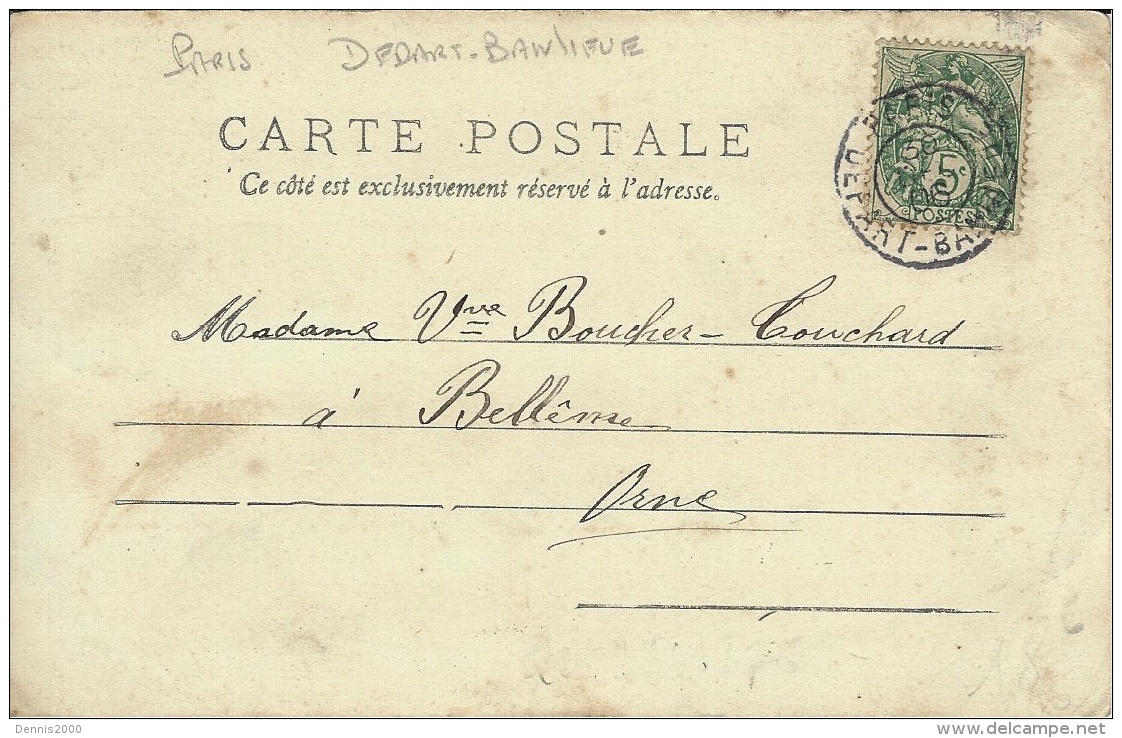 PARIS DEPART-BANLIEUE
CARTE POSTALE
Ce côté est exclusivement réservé à l'adresse.
5c
POSTES
PARIS
30
06
DEPART-BAN
Madame Vve Boucher-Couchard
à Bellême
Orne
Dennis2000
www.delcampe.net